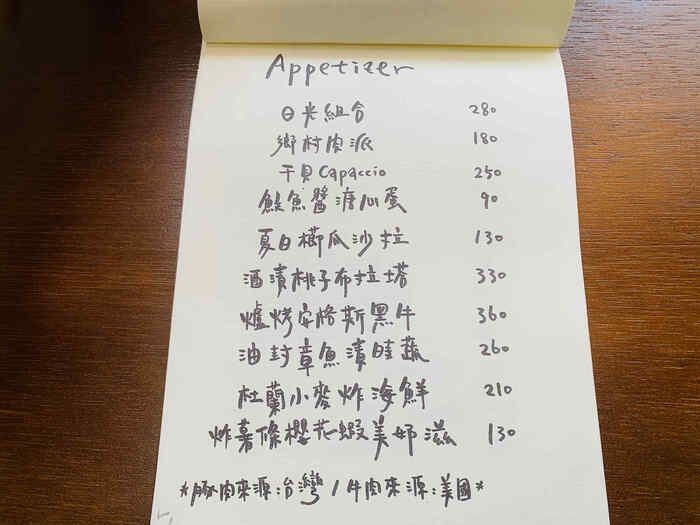 Appetizer
日光組合 280
鄉村肉派 180
干貝Capaccio 250
鯷魚醬溏心蛋 90
夏日櫛瓜沙拉 130
酒漬桃子布拉塔 330
爐烤安格斯黑牛 360
油封章魚漬時蔬 260
杜蘭小麥炸海鮮 210
炸薯條櫻花蝦美奶滋 130
*豚肉來源:台灣/牛肉來源:美國*